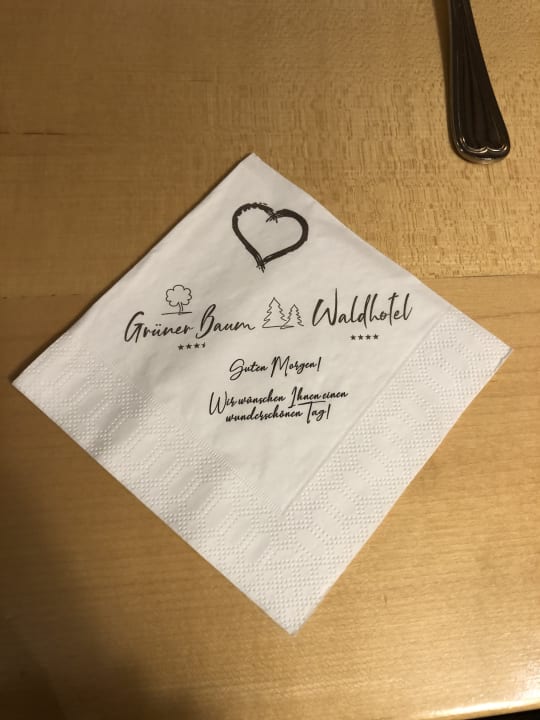 Grüner Baum Waldhotel
Guten Morgen!
Wir wünschen Ihnen einen
wunderschönen Tag!